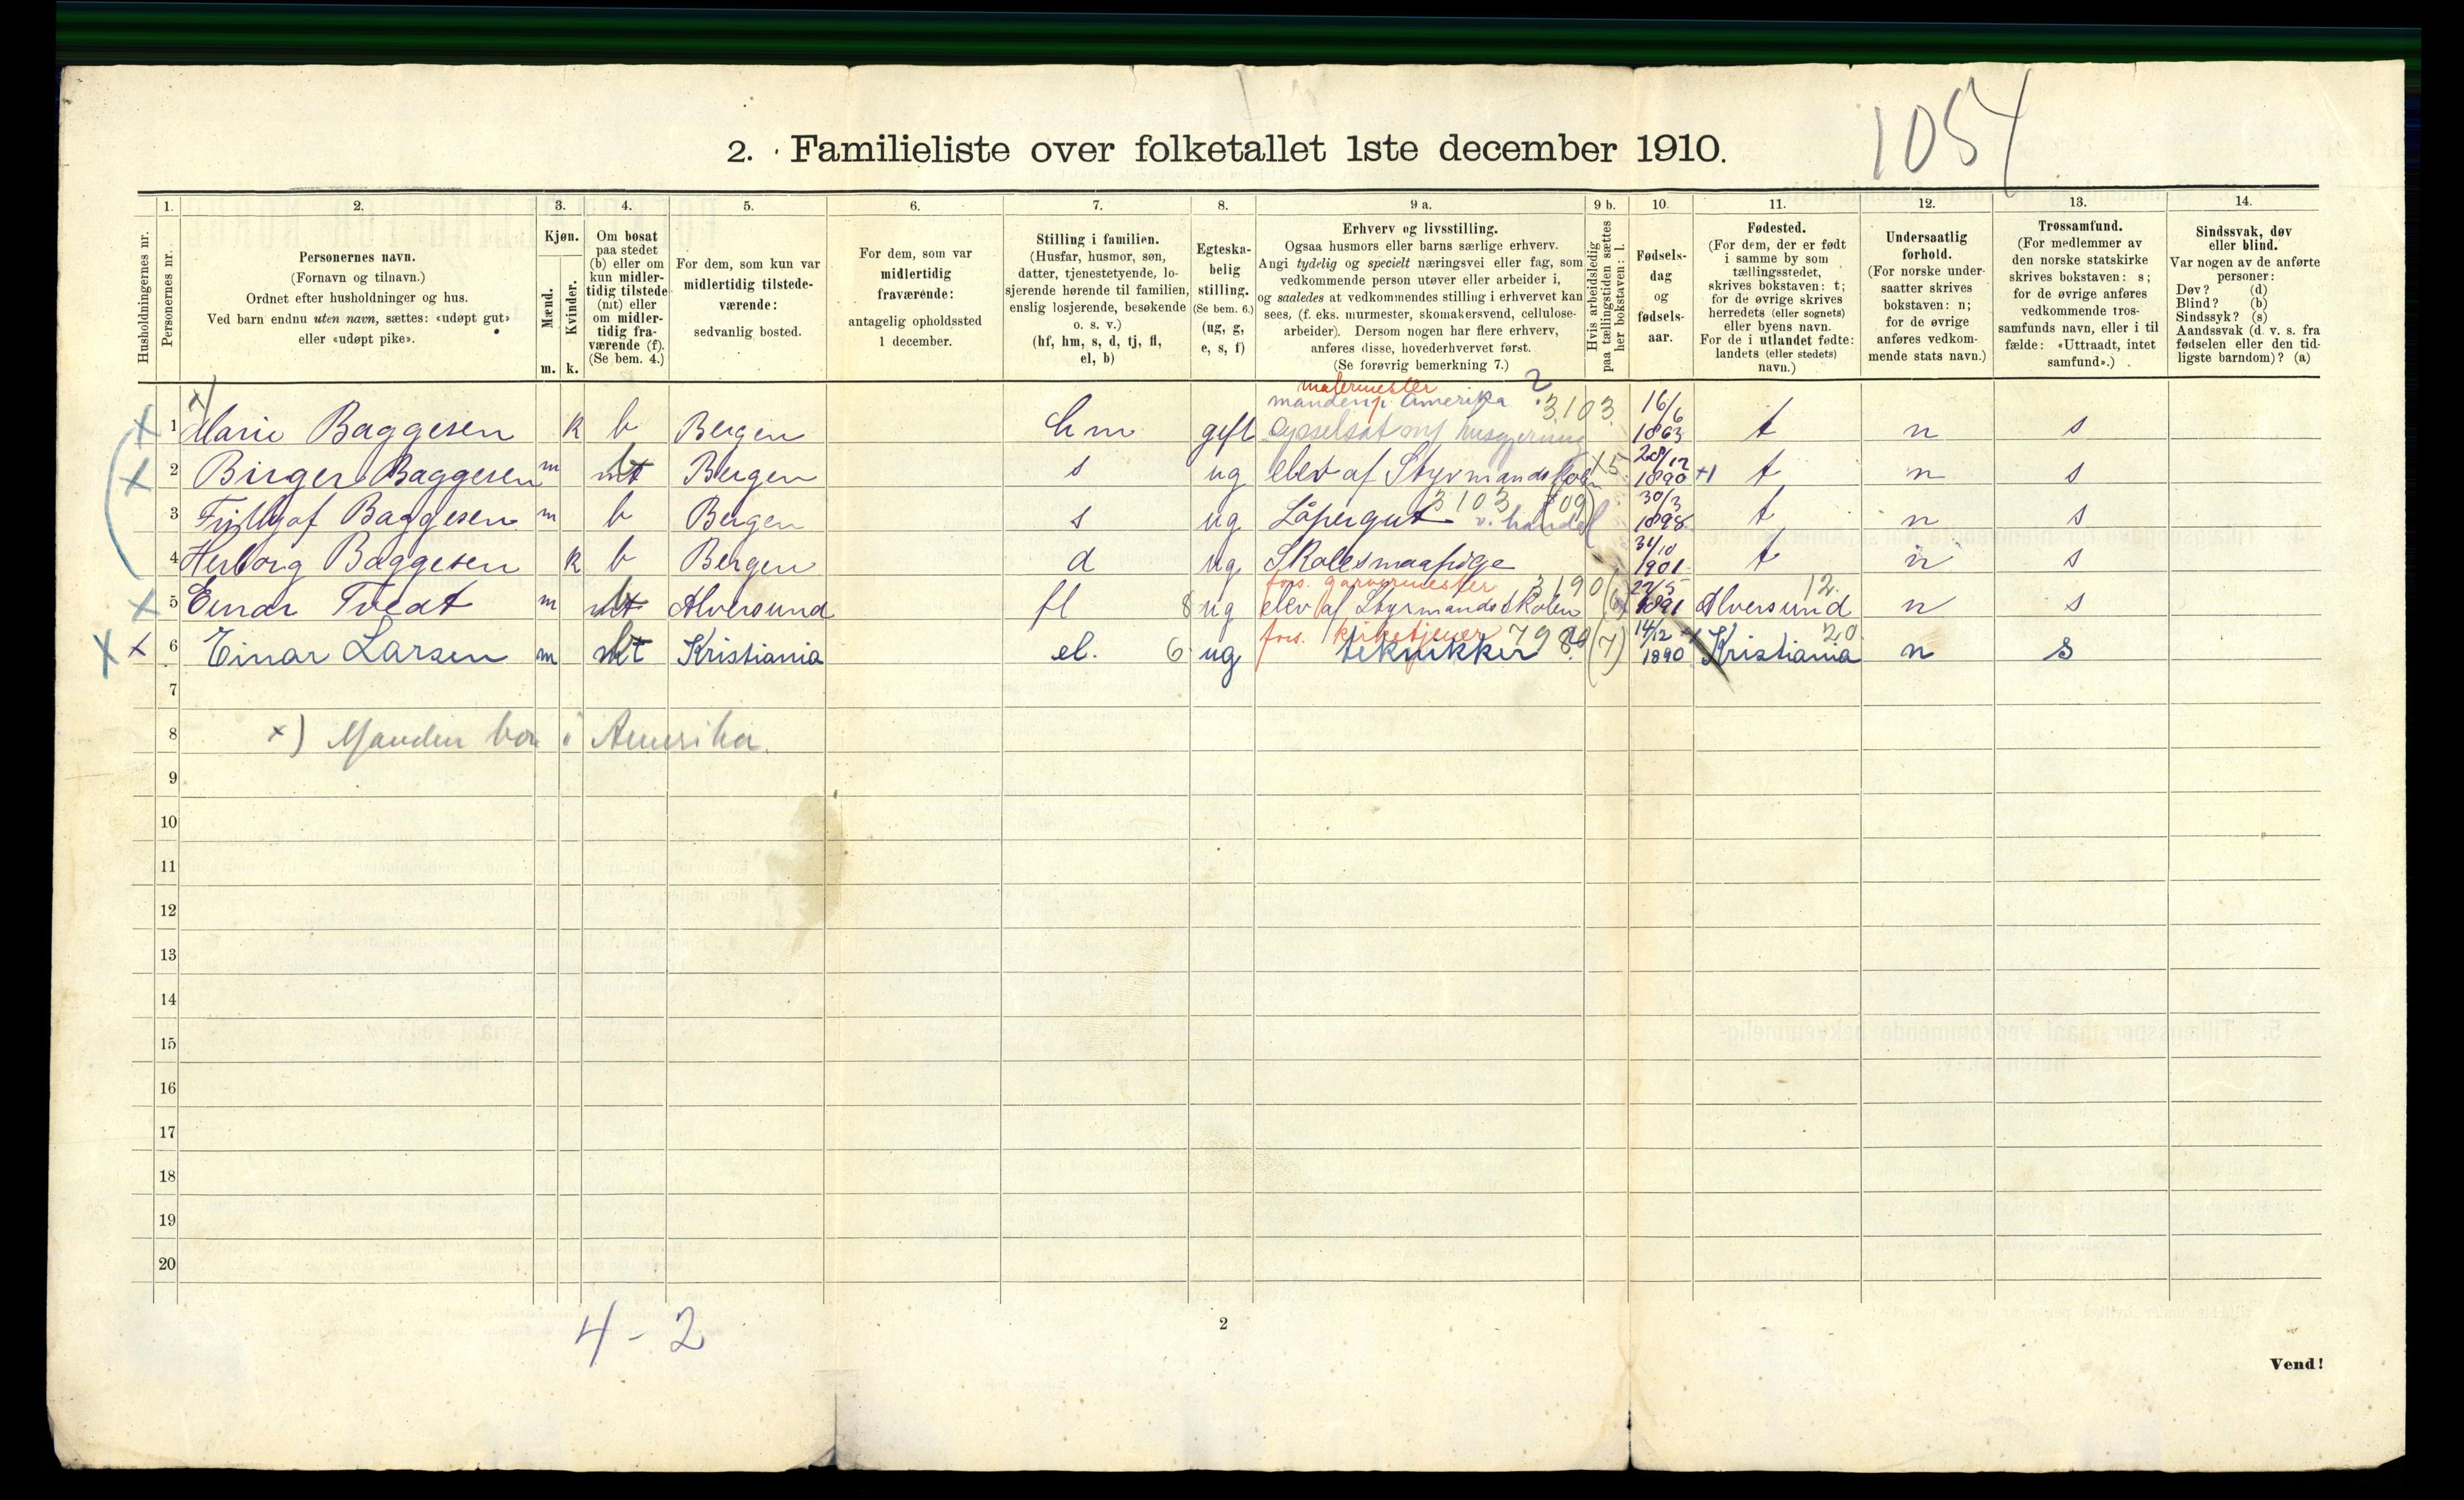 1054
2. Familieliste over folketallet 1ste december 1910.
Husholdningernes nr.
1. Personernes nr.
2. Personernes navn.
(Fornavn og tilnavn.)
Ordnet efter husholdninger og hus.
Ved barn endnu uten navn, sættes: «udøpt gut»
eller «udøpt pike».
3. Kjøn.
Mænd. m.
Kvinder. k.
4. Om bosat
paa stedet
(b) eller om
kun midler-
tidig tilstede
(mt) eller
om midler-
tidig fra-
værende (f).
(Se bem. 4.)
5. For dem, som kun var
midlertidig tilstede-
værende:
sedvanlig bosted.
6. For dem, som var
midlertidig
fraværende:
antagelig opholdssted
1 december.
7. Stilling i familien.
(Husfar, husmor, søn,
datter, tjenestetyende, lo-
sjerende hørende til familien,
enslig losjerende, besøkende
o. s. v.)
(hf, hm, s, d, tj, fl,
el, b)
8. Egteska-
belig
stilling.
(Se bem. 6.)
(ug, g,
e, s, f)
9 a. Erhverv og livsstilling.
Ogsaa husmors eller barns særlige erhverv.
Angi tydelig og specielt næringsvei eller fag, som
vedkommende person utøver eller arbeider i,
og saaledes at vedkommendes stilling i erhvervet kan
sees, (f. eks. murmester, skomakersvend, cellulose-
arbeider). Dersom nogen har flere erhverv,
anføres disse, hovederhvervet først.
(Se forøvrig bemerkning 7.)
9 b. Hvis arbeidsledig
paa tællingstiden sættes
her bokstaven: l.
10. Fødsels-
dag
og
fødsels-
aar.
11. Fødested.
(For dem, der er født
i samme by som
tællingsstedet,
skrives bokstaven: t;
for de øvrige skrives
herredets (eller sognets)
eller byens navn.
For de i utlandet fødte:
landets (eller stedets)
navn.)
12. Undersaatlig
forhold.
(For norske under-
saatter skrives
bokstaven: n;
for de øvrige
anføres vedkom-
mende stats navn.)
13. Trossamfund.
(For medlemmer av
den norske statskirke
skrives bokstaven: s;
for de øvrige anføres
vedkommende tros-
samfunds navn, eller i til
fælde: «Uttraadt, intet
samfund».)
14. Sindssvak, døv
eller blind.
Var nogen av de anførte
personer:
Døv? (d)
Blind? (b)
Sindssyk? (s)
Aandssvak (d. v. s. fra
fødselen eller den tid-
ligste barndom)? (a)
malermester
manden i Amerika ? 3103
x 1 x) Marie Baggesen k b Bergen hm gift husgjerning 16/6 1863 t n s
x 2 Birger Baggesen m mt b Bergen s ug elev af Styrmandsskolen x5 28/12 1890 +1 t n s
3103 (09)
3 Frithjof Baggesen m b Bergen s ug Låpergut v. handel 30/3 1898 t n s
4 Herborg Baggesen k b Bergen d ug Skolesmaapige 31/10 1901 t n s
fors. garvermester 3190 (6) 12.
x 5 Einar Tvedt m mt b Alversund fl 8 ug elev af Styrmandsskolen 22/5 1891 Alversund n s
fors. kirketjener 7980 (7) 20.
x x 6 Einar Larsen m mt b Kristiania el. 6 ug teknikker 14/12 1890 Kristiania n s
7
8 x) Manden bor i Amerika.
9
10
11
12
13
14
15
16
17
18
19
20
4 - 2
2
Vend!